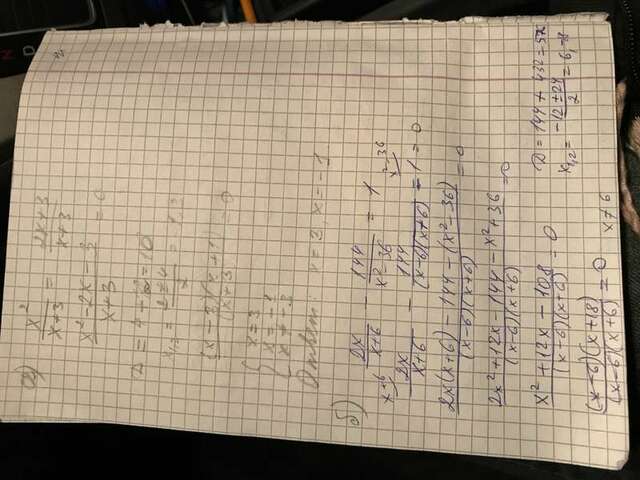 а) x²/(x+3) = (2x+3)/(x+3)
(x²-2x-3)/(x+3) = 0
D = 4+12=16
x₁,₂ = (2±4)/2 = -1,3
(x-3)(x+1)/(x+3) = 0
{ x=3
x=-1
x≠-3
Ответ: x=3, x=-1
б) 2x/(x+6) - 144/(x²-36) = 1
x-6 x²-36
2x/(x+6) - 144/((x-6)(x+6)) - 1 = 0
(2x(x+6)-144-(x²-36))/((x-6)(x+6)) = 0
(2x²+12x-144-x²+36)/((x-6)(x+6)) = 0
(x²+12x-108)/((x-6)(x+6)) = 0
D = 144 + 432 = 576
x₁,₂ = (-12±24)/2 = 6,-18
(x-6)(x+18)/((x-6)(x+6)) = 0 x≠6